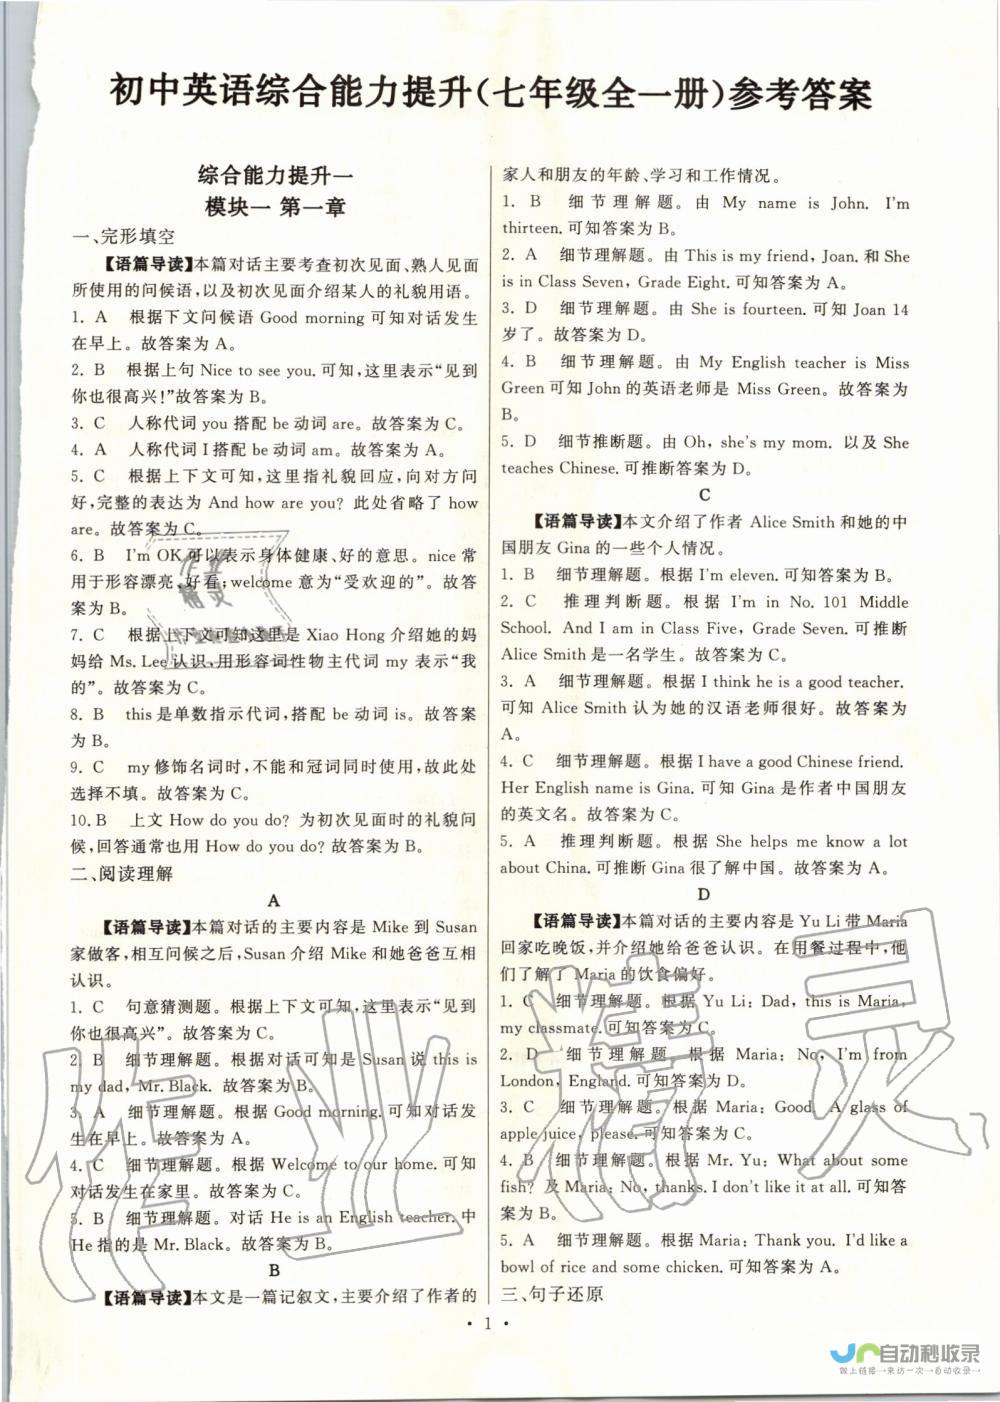 初中英语综合能力提升(七年级全一册)参考答案
综合能力提升一
模块一 第一章
一、完形填空
【语篇导读】本篇对话主要考查初次见面、熟人见面
所使用的问候语,以及初次见面介绍某人的礼貌用语。
1. A 根据下文问候语 Good morning 可知对话发生
在早上。故答案为 A。
2. B 根据上句 Nice to see you. 可知,这里表示“见到
你也很高兴!”故答案为 B。
3. C 人称代词 you 搭配 be 动词 are。故答案为 C。
4. A 人称代词 I 搭配 be 动词 am。故答案为 A。
5. C 根据上下文可知,这里指礼貌回应,向对方问
好,完整的表达为 And how are you? 此处省略了 how
are。故答案为 C。
6. B I'm OK 可以表示身体健康、好的意思。nice 常
用于形容漂亮、好看;welcome 意为“受欢迎的”。故答
案为 B。
7. C 根据上下文可知这里是 Xiao Hong 介绍她的妈
妈给 Ms. Lee 认识,用形容词性物主代词 my 表示“我
的”。故答案为 C。
8. B this 是单数指示代词,搭配 be 动词 is。故答案
为 B。
9. C my 修饰名词时,不能和冠词同时使用,故此处
选择不填。故答案为 C。
10. B 上文 How do you do? 为初次见面时的礼貌问
候,回答通常也用 How do you do? 故答案为 B。
二、阅读理解
A
【语篇导读】本篇对话的主要内容是 Mike 到 Susan
家做客,相互问候之后,Susan 介绍 Mike 和她爸爸互相
认识。
1. C 句意猜测题。根据上下文可知,这里表示“见到
你也很高兴”。故答案为 C。
2. B 细节理解题。根据对话可知是 Susan 说 this is
my dad, Mr. Black. 故答案为 B。
3. A 细节理解题。根据 Good morning. 可知对话发
生在早上。故答案为 A。
4. C 细节理解题。根据 Welcome to our home. 可知
对话发生在家里。故答案为 C。
5. B 细节理解题。对话 He is an English teacher. 中
He 指的是 Mr. Black。故答案为 B。
B
【语篇导读】本文是一篇记叙文,主要介绍了作者的
家人和朋友的年龄、学习和工作情况。
1. B 细节理解题。由 My name is John. I'm
thirteen. 可知答案为 B。
2. A 细节理解题。由 This is my friend, Joan. 和 She
is in Class Seven, Grade Eight. 可知答案为 A。
3. D 细节理解题。由 She is fourteen. 可知 Joan 14
岁了。故答案为 D。
4. B 细节理解题。由 My English teacher is Miss
Green 可知 John 的英语老师是 Miss Green。故答案为
B。
5. D 细节推断题。由 Oh, she's my mom. 以及 She
teaches Chinese. 可推断答案为 D。
C
【语篇导读】本文介绍了作者 Alice Smith 和她的中
国朋友 Gina 的一些个人情况。
1. B 细节理解题。根据 I'm eleven. 可知答案为 B。
2. C 推理判断题。根据 I'm in No. 101 Middle
School. And I am in Class Five, Grade Seven. 可推断
Alice Smith 是一名学生。故答案为 C。
3. A 细节理解题。根据 I think he is a good teacher.
可知 Alice Smith 认为她的汉语老师很好。故答案为
A。
4. C 细节理解题。根据 I have a good Chinese friend.
Her English name is Gina. 可知 Gina 是作者中国朋友
的英文名。故答案为 C。
5. A 推理判断题。根据 She helps me know a lot
about China. 可推断 Gina 很了解中国。故答案为 A。
D
【语篇导读】本篇对话的主要内容是 Yu Li 带 Maria
回家吃晚饭,并介绍她给爸爸认识。在用餐过程中,他
们了解了 Maria 的饮食偏好。
1. C 细节理解题。根据 Yu Li: Dad, this is Maria,
my classmate. 可知答案为 C。
2. D 细节理解题。根据 Maria: No, I'm from
London, England. 可知答案为 D。
3. C 细节理解题。根据 Maria: Good. A glass of
apple juice, please. 可知答案为 C。
4. B 细节理解题。根据 Mr. Yu: What about some
fish? 及 Maria: No, thanks. I don't like it at all. 可知答
案为 B。
5. A 细节理解题。根据 Maria: Thank you. I'd like a
bowl of rice and some chicken. 可知答案为 A。
三、句子还原
• 1 •
作业精灵
作业
精灵
自动秒收录
做上链接→来访一次→自动收录